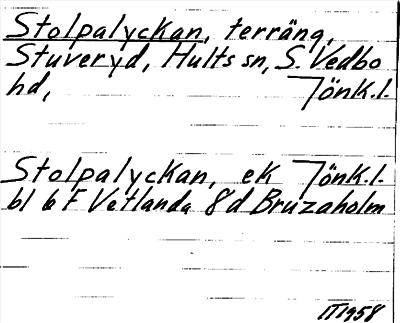 Stolpalyckan, terräng,
Stuveryd, Hults sn, S. Vedbo
hd, Jönk.l.
Stolpalyckan, ek Jönk.l.
bl 6F Vetlanda 8d Bruzaholm
IT1958